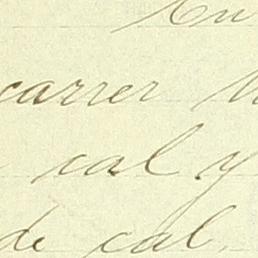 En
carrer
cal y
de cal.